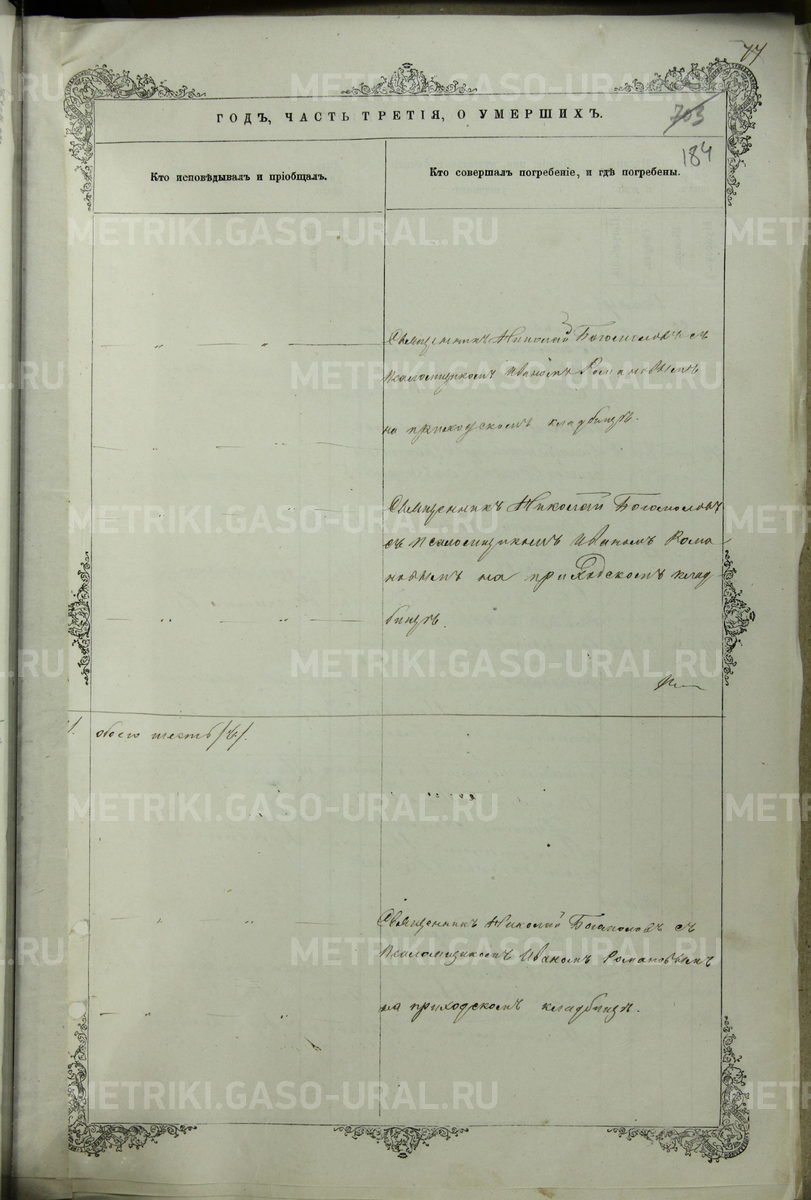 77
ГОДЪ, ЧАСТЬ ТРЕТІЯ, О УМЕРШИХЪ.
703
184
Кто исповѣдывалъ и пріобщалъ.
Кто совершалъ погребеніе, и гдѣ погребены.
Священникъ Николай Богомоловъ съ
Псаломщикомъ Иваномъ Романовымъ
на приходскомъ кладбищѣ.
Священникъ Николай Богомоловъ
съ Псаломщикомъ Иваномъ Рома
новымъ на приходскомъ клад
бищѣ.
обоего шесть
Священникъ Николай Богомоловъ съ
Псаломщикомъ Иваномъ Романовымъ
на приходскомъ кладбищѣ.
METRIKI.GASO-URAL.RU